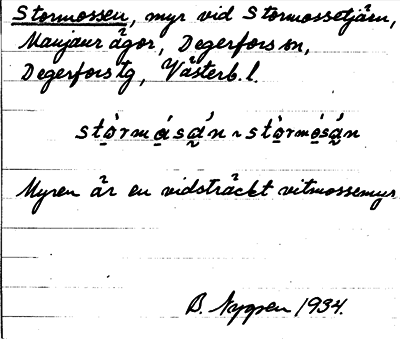 Stormossen, myr vid Stormossetjärn,
Maujaur ägor, Degerfors sn,
Degerfors tg, Västerb. l.
stòrmåsa'n ~ stòrmòsa'n
Myren är en vidsträckt vitmossemyr
B. Nygren 1934.